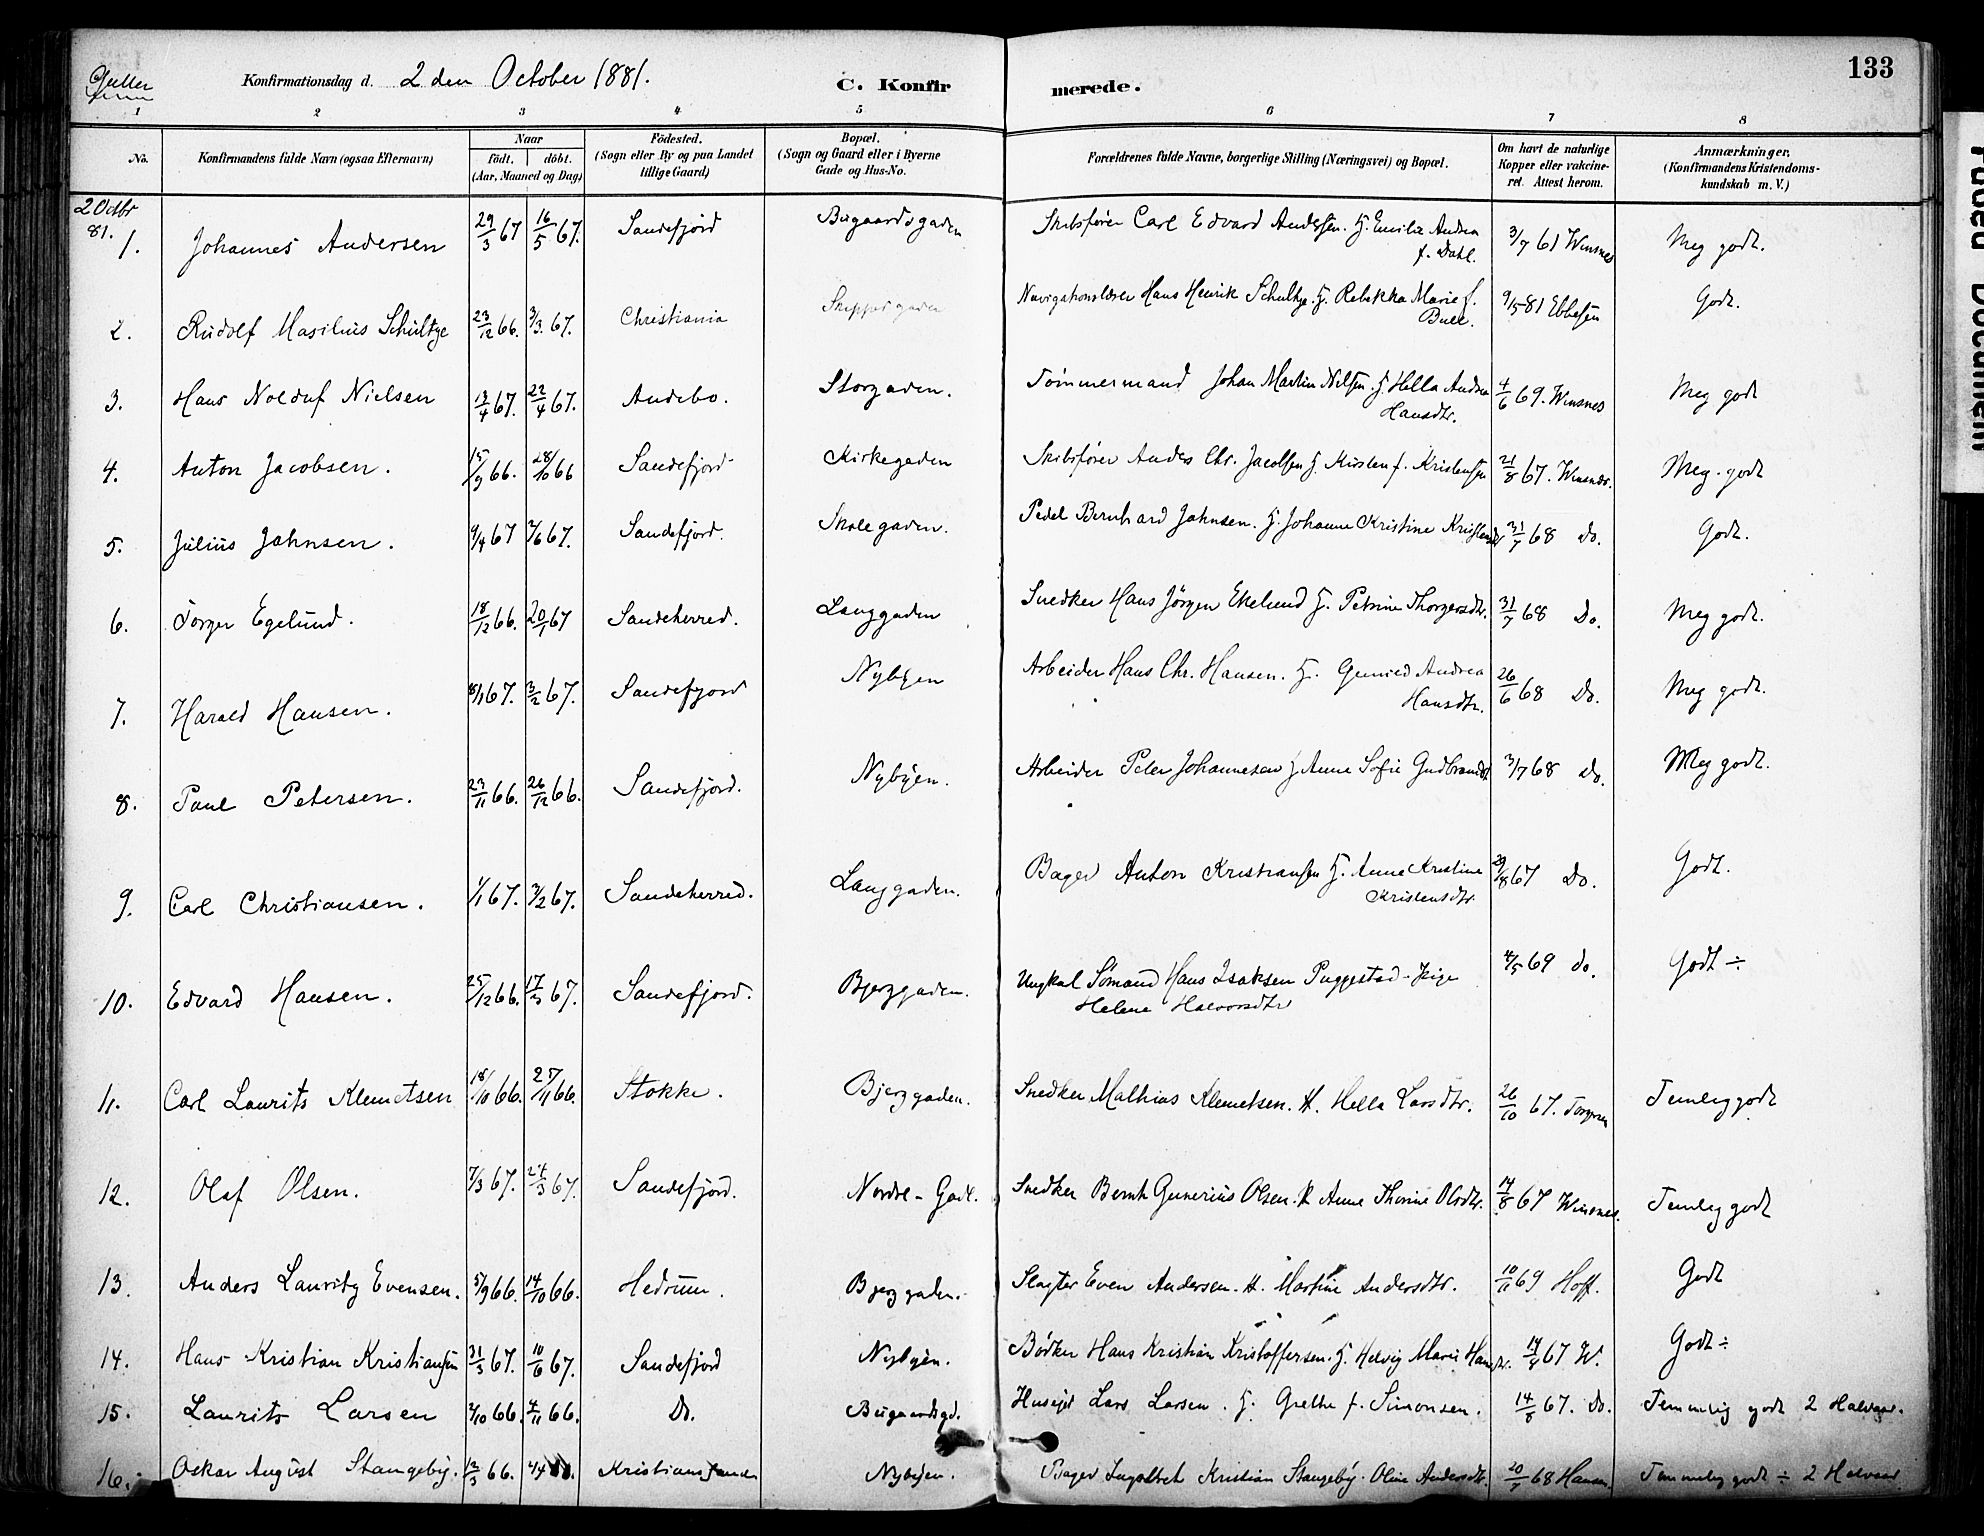 133
Konfirmationsdag d. 2 den October 1881. C. Konfirmerede.
1 2 3 4 5 6 7 8
No. Konfirmandens fulde Navn (ogsaa Efternavn) Naar födt. döbt. (Aar, Maaned og Dag) Födested. (Sogn eller By og paa Landet tillige Gaard) Bopæl. (Sogn og Gaard eller i Byerne Gade og Hus-No. Forældrenes fulde Navne, borgerlige Stilling (Næringsvei) og Bopæl. Om havt de naturlige Kopper eller vakcineret. Attest herom. Anmærkninger. (Konfirmandens Kristendomskundskab m. V.)
2 Octbr 81.
1. Johannes Andersen 29/3 67 16/5 67. Sandefjord Bugaardsgaden Skibsfører Carl Edvard Andersen. H. Emilie Andrea f. Dahl. 3/7 61 Winsnes Meg godt.
2. Rudolf Masilius Schultze 23/12 66. 3/3. 67. Christiania Skippergaden Navigationslærer Hans Henrik Schultze. H. Rebekka Marie f. Bull. 9/5 81 Ebbesen Godt.
3. Hans Nolduf Nielsen 13/4 67. 22/4 67. Andebo. Storgaden. Tømmermand Johan Martin Nilsen. H. Hella Andrea Hansdtr. 4/6 69. Winsnes Meg godt
4. Anton Jacobsen. 15/9 66. 28/10 66 Sandefjord Kirkegaden Skibsfører Anders Chr. Jacobsen H. Kirsten f. Kristensen 21/8 67. Winsnes. Meg. godt
5. Julius Jahnsen. 9/4 67 7/6 67. Sandefjord. Skolegaden. Pedel Bernhard Jahnsen. H. Johanne Kristine 31/7 68 Do. Godt.
6. Torger Egelund. 18/12 66. 20/1 67 Sandeherred. Langgaden Snedker Hans Jörgen Ekelund H. Petrine Thorgersdtr. 31/7 68 Do. Meg godt.
7. Harald Hansen. 8/1 67. 3/2 67. Sandefjord Nybyen Arbeider Hans Chr. Hansen. H. Andrea Hansdtr. 26/6 68 Do. Meg godt.
8. Paul Petersen. 23/11 66. 26/12 66. Sandefjord. Nybyen. Arbeider Peter Johannesen H Anne Sofie 3/7 68 Do. Meg godt.
9. Carl Christiansen. 1/1 67. 3/2 67. Sandeherred. Langgaden. Bager Anton Kristiansen H. Anne Kristine Kristensdtr 29/8 67 Do. Godt.
10. Edvard Hansen. 25/12 66. 17/3 67. Sandefjord. Bjerggaden. Ungkal Sømand Hans Isaksen Puggestad - Pige Helene Halvorsdtr 4/5 69 do. Godt ÷
11. Carl Laurits Klemetsen 18/10 66. 27/11 66. Stokke. Bjerggaden. Snedker Mathias Klemetsen. H. Hella Larsdtr. 26/10 67. Temlig godt
12. Olaf Olsen. 7/3 67. 24/3 67. Sandefjord. Nordre-Gade. Snedker Bernt Gunerius Olsen. H Anne Thorine Olsdtr. 14/8 67 Winsnes. Temlig godt
13. Anders Lauritz Evensen. 5/9 66. 14/10 66. Hedrum. Bjerggaden. Slagter Even Andersen. H. Martine Andersdtr. 10/11 69 Hoff. Godt
14. Hans Kristian Kristiansen 31/3 67. 10/6 67. Sandefjord Nybyen. Bødker Hans Kristian Kristoffersen. H. Helvig Marie Hansdtr. 14/8 67 W. Godt ÷
15. Laurits Larsen 2/10 66. 4/11 66. Do. Bugaardsgd. Lars Larsen. H. Grethe f. Simonsen. 14/8 67. Do. Temmlig godt 2 Halvaar.
16. Oskar August Stangeby. 12/3 66. Kristianssand Nybyen. Bager Ingebret Kristian Stangeby. Oline Andersdtr. 20/7 68 Hansen. Temmelig godt ÷ 2 Halvaar